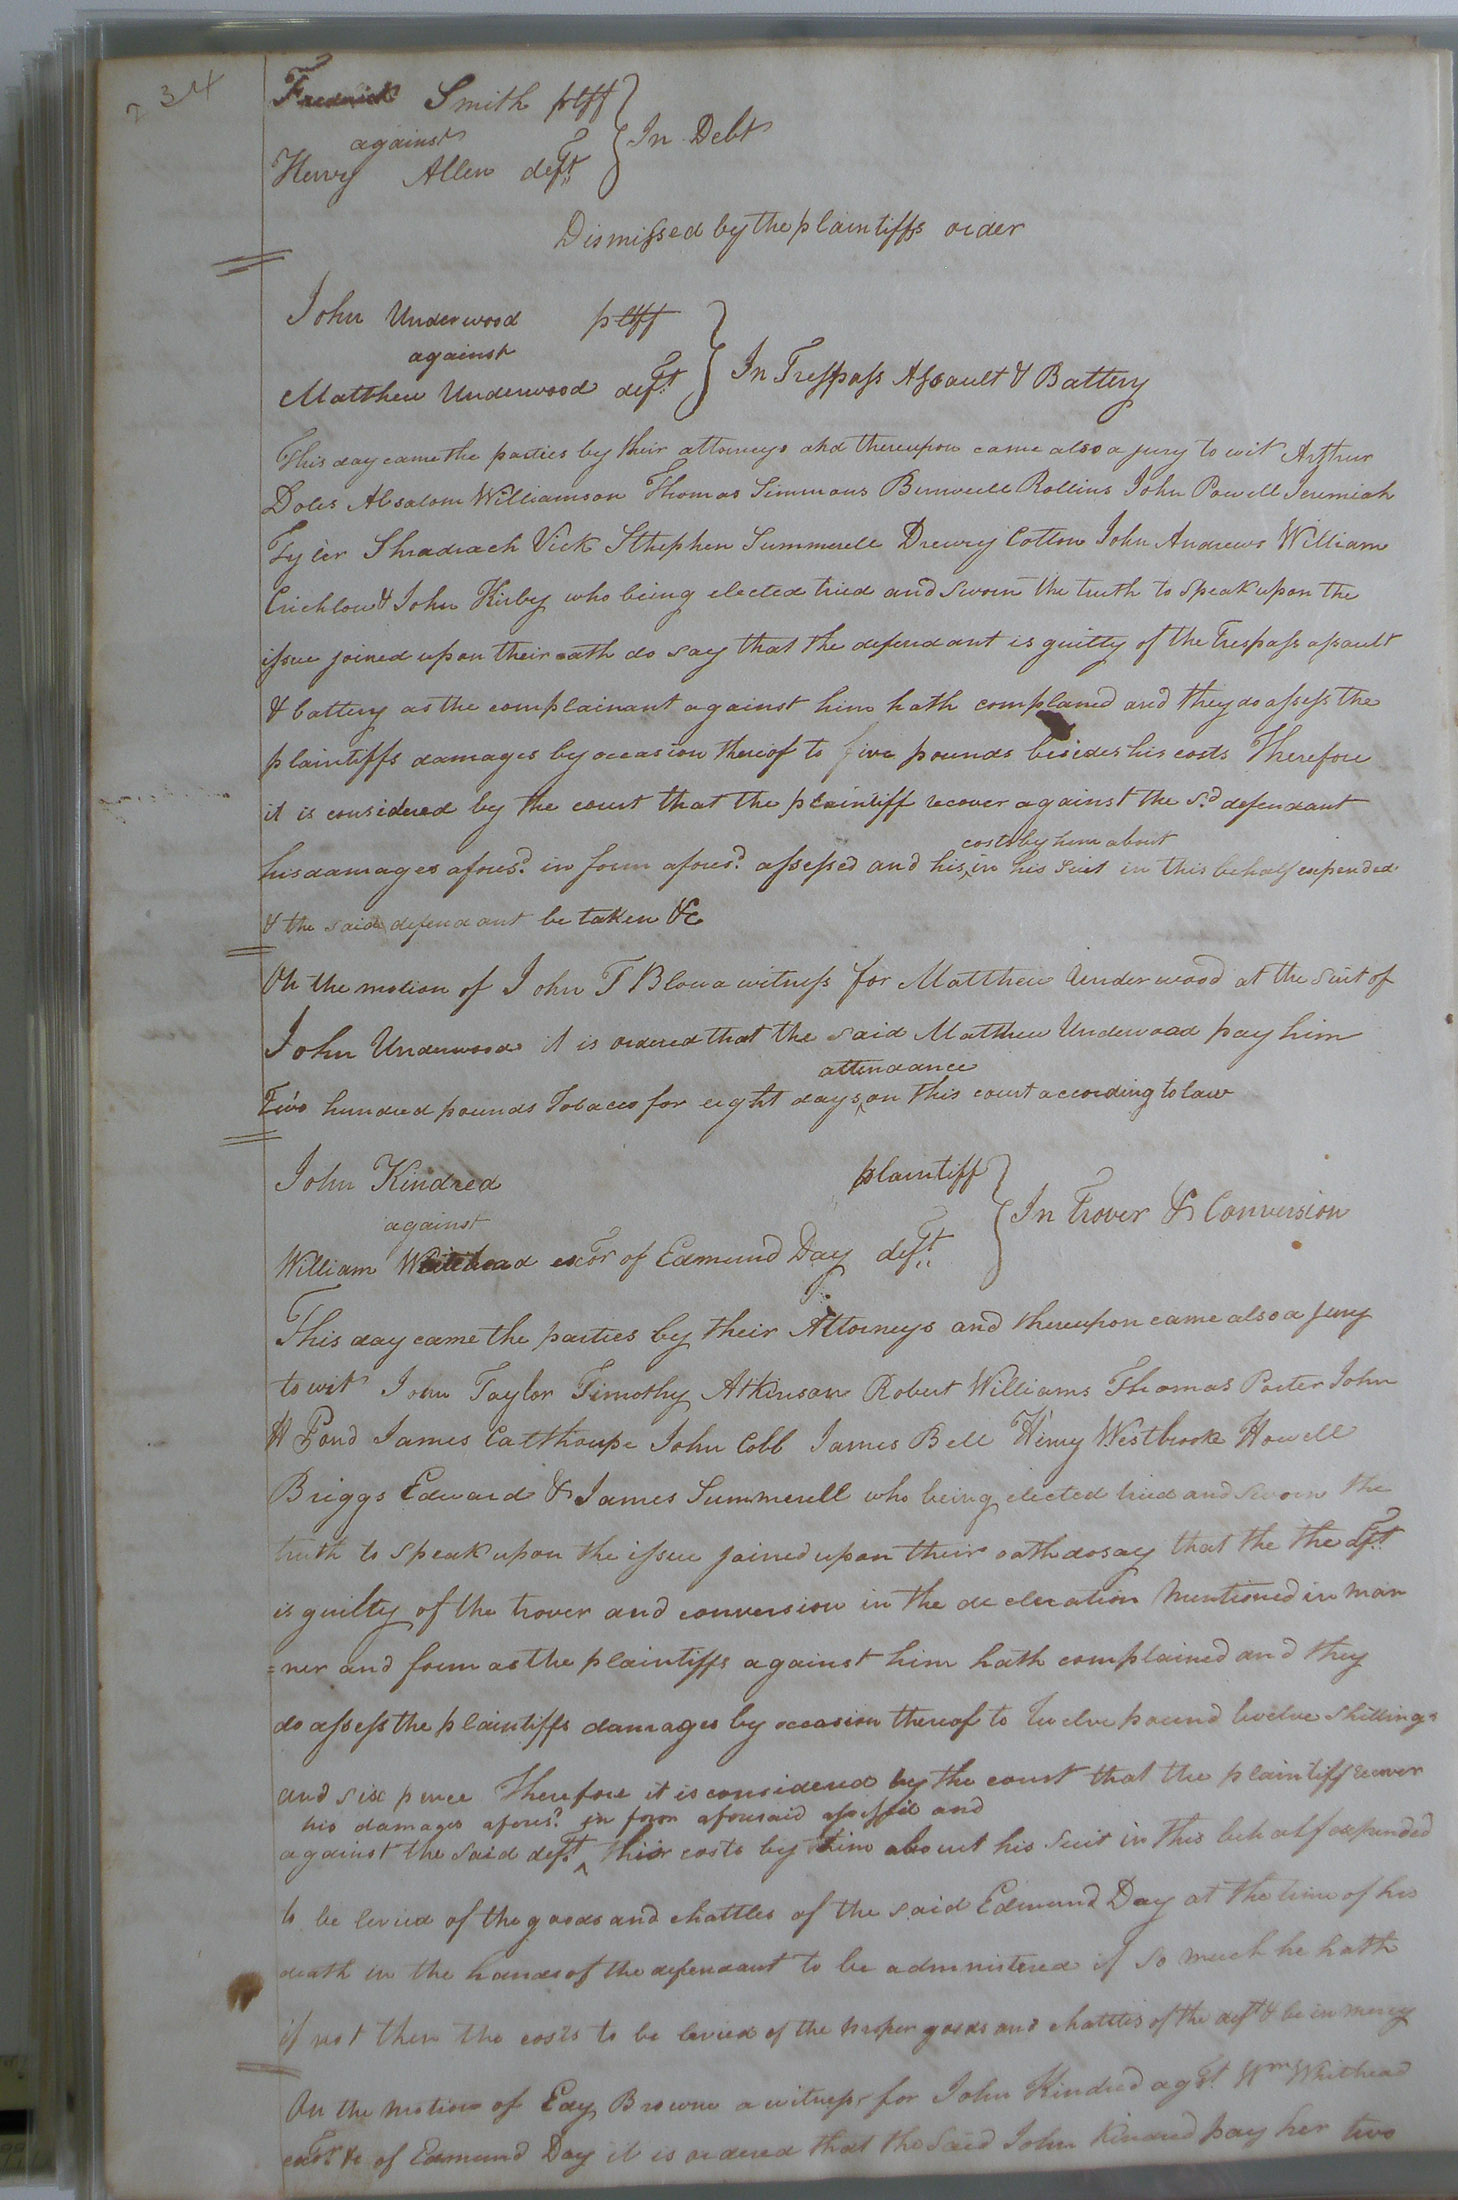 234
Fredrick Smith pltff
against
Henry Allen deft } In Debt
Dismissed by the plaintiffs order
John Underwood pltff
against
Matthew Underwood deft } In Trespass Assault & Battery
This day came the parties by their attorneys and thereupon came also a jury to wit Arthur
Doles Absalom Williamson Thomas Simmons Rollins John Powell Jeremiah
Tyler Shadrach Vick Sthephen Summerell Drewry Cotton John Andrews William
Crichlow & John Kirby who being elected tried and sworn the truth to speak upon the
issue joined upon their oath do say that the defendant is guilty of the Trespass assault
& battery as the complainant against him hath complaned and they do assess the
plaintiffs damages by occasion thereof to five pounds besides his costs Therefore
it is considered by the court that the plaintiff recover against the sd. defendant
his damages afores.d in form afores.d assessed and his costs by him about in his suit in this behalf expended
& the said defendant be taken &c
On the motion of John T Blow a witness for Matthew Underwood at the suit of
John Underwood it is ordered that the said Matthew Underwood pay him
Two hundred pounds Tobacco for eight days attendance on this court according to law
John Kindred plaintiff
against
William Whitehead exor of Edmund Day deft } In Trover & Conversion
This day came the parties by their Attorneys and thereupon came also a jury
to wit John Taylor Timothy Atkinson Robert Williams Thomas Porter John
H Pond James Calthorpe John Cobb James Bell Henry Westbrook Howell
Briggs Edward & James Summerell who being elected tried and sworn the
truth to speak upon the issue joined upon their oath do say that the the deft
is guilty of the trover and conversion in the decleration mentioned in man
=ner and form as the plaintiffs against him hath complained and they
do assess the plaintiffs damages by occasion thereof to twelve pound twelve shillings
and six pence Therefore it is considered by the court that the plaintiff recover
his damages afores.d in form aforesaid assessed and
against the said deft his costs by him about his suit in this behalf expended
to be levied of the goods and chattles of the said Edmund Day at the time of his
death in the hands of the defendant to be administered if so much he hath
if not then the costs to be levied of the proper goods and chattles of the deft & be in mercy
On the motion of Edy Browne a witness for John Kindred agst. Wm Whithead
exor &c of Edmund Day it is ordered that the said John Kindred pay her two